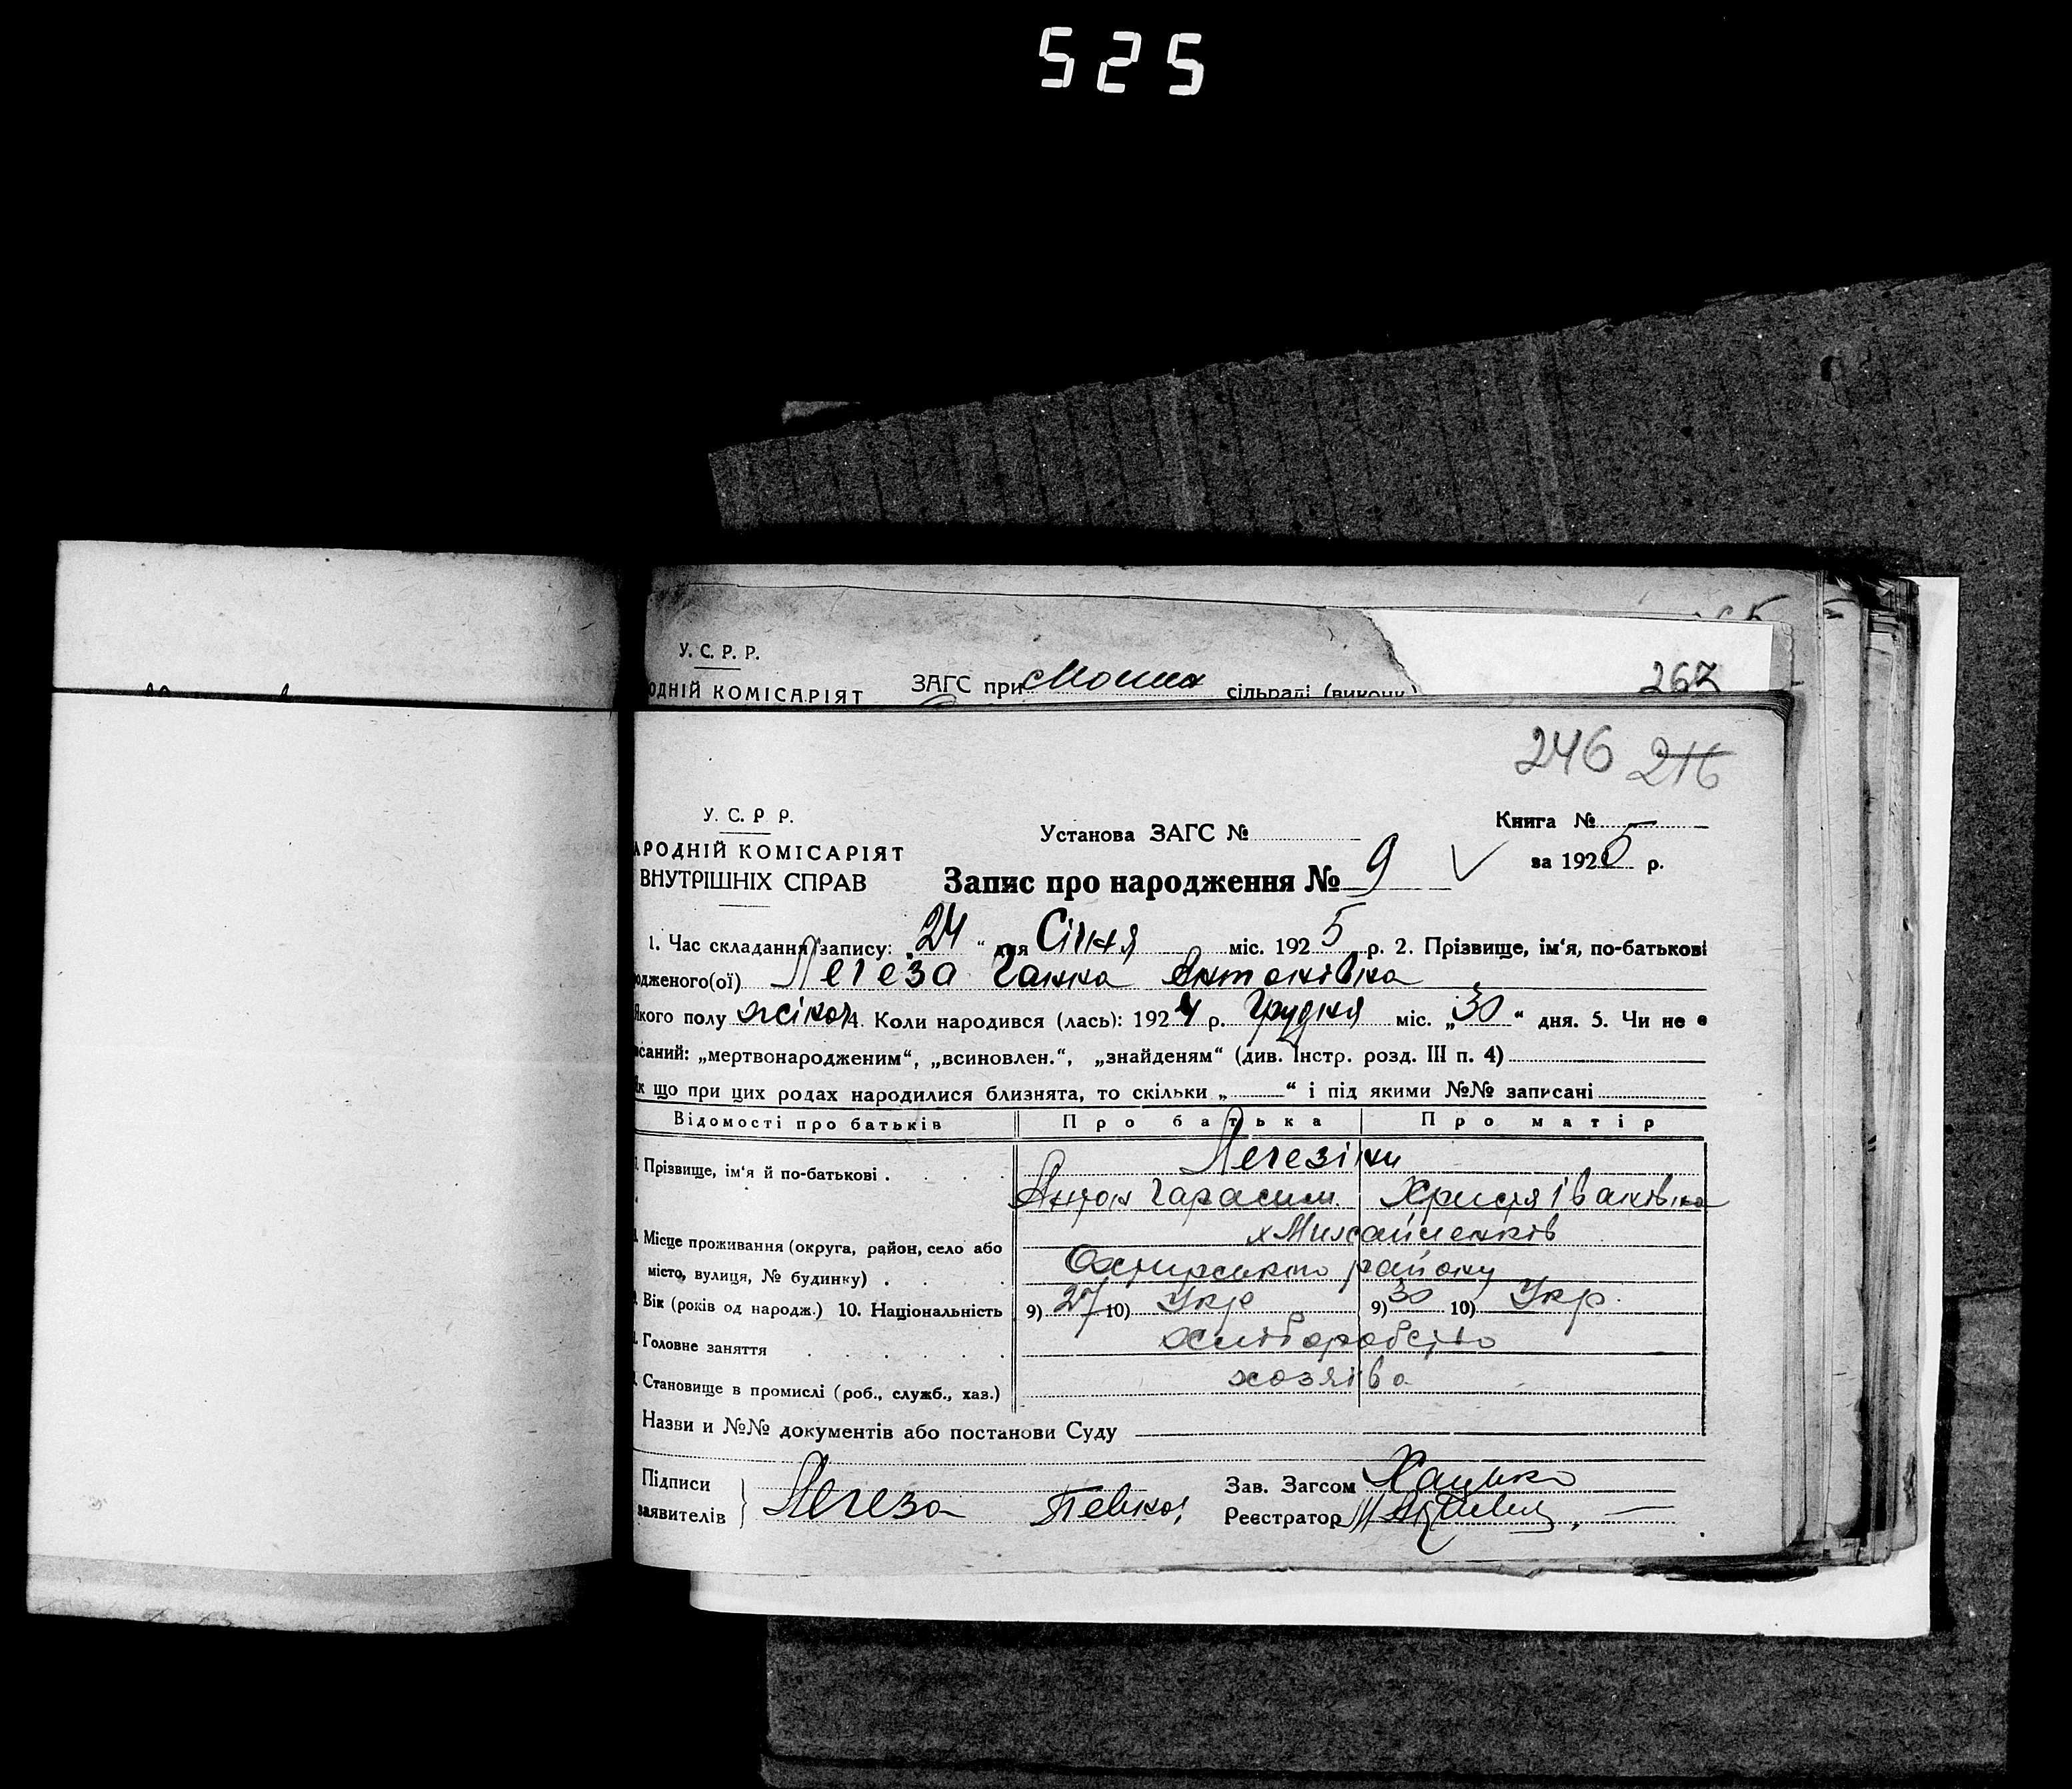 525
У. С. Р. Р.
ОДНІЙ КОМІСАРІЯТ ЗАГС при сільраді (викона.)
267
246 216
У. С. Р. Р.
АРОДНІЙ КОМІСАРІЯТ
ВНУТРІШНІХ СПРАВ
Установа ЗАГС №
Книга №
за 1925 р.
Запис про народження № 9
1. Час складання запису: „24" дня Січня міс. 1925 р. 2. Прізвище, ім'я, по-батькові
одженого(ої) Легеза Ганна Антонівна
Якого полу жіноч 4. Коли народився (лась): 1924 р. Грудня міс. „30" дня. 5. Чи не є
исаний: „мертвонародженим", „всиновлен.", „знайденям" (див. Інстр. розд. III п. 4)
Як що при цих родах народилися близнята, то скільки „ " і під якими №№ записані
Відомості про батьків Про батька Про матір
Прізвище, ім'я й по-батькові Легезіни
Антон Гарасим. Христя Іванівна
Місце проживання (округа, район, село або х Михайленків
місто, вулиця, № будинку) Охтирського району
Вік (років од народж.) 10. Національність 9) 27 10) Укр 9) 30 10) Укр.
Головне заняття хліборобство
Становище в промислі (роб., служб., хаз.) хозяїва
Назви и №№ документів або постанови Суду
Підписи
заявителів Легеза
Зав. Загсом Хацько
Реєстратор